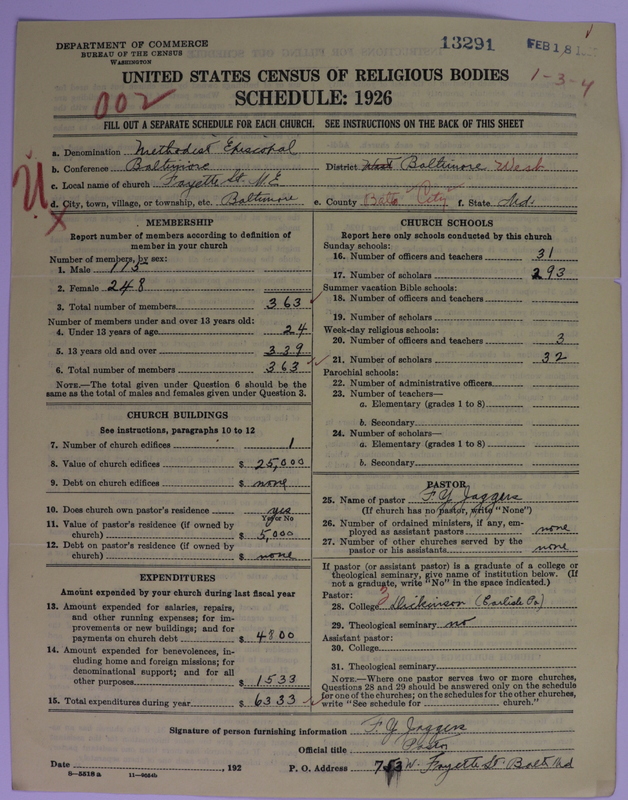 DEPARTMENT OF COMMERCE
BUREAU OF THE CENSUS
WASHINGTON
13291
FEB 18 1
1-3-4
UNITED STATES CENSUS OF RELIGIOUS BODIES
002
SCHEDULE: 1926
FILL OUT A SEPARATE SCHEDULE FOR EACH CHURCH. SEE INSTRUCTIONS ON THE BACK OF THIS SHEET
a. Denomination Methodist Episcopal
b. Conference Baltimore District West Baltimore West
c. Local name of church Fayette St. M.E
d. City, town, village, or township, etc. Baltimore e. County Balto City f. State Md.
MEMBERSHIP
Report number of members according to definition of
member in your church
Number of members, by sex:
1. Male 115
2. Female 248
3. Total number of members 363
Number of members under and over 13 years old:
4. Under 13 years of age 24
5. 13 years old and over 339
6. Total number of members 363
NOTE.—The total given under Question 6 should be the
same as the total of males and females given under Question 3.
CHURCH BUILDINGS
See instructions, paragraphs 10 to 12
7. Number of church edifices 1
8. Value of church edifices $ 25,000
9. Debt on church edifices $ none
10. Does church own pastor's residence yes
Yes or No
11. Value of pastor's residence (if owned by
church) $ 5,000
12. Debt on pastor's residence (if owned by
church) $ none
EXPENDITURES
Amount expended by your church during last fiscal year
13. Amount expended for salaries, repairs,
and other running expenses; for im-
provements or new buildings; and for
payments on church debt $ 4800
14. Amount expended for benevolences, in-
cluding home and foreign missions; for
denominational support; and for all
other purposes $ 1533
15. Total expenditures during year $ 6333
CHURCH SCHOOLS
Report here only schools conducted by this church
Sunday schools:
16. Number of officers and teachers 31
17. Number of scholars 293
Summer vacation Bible schools:
18. Number of officers and teachers
19. Number of scholars
Week-day religious schools:
20. Number of officers and teachers 3
21. Number of scholars 32
Parochial schools:
22. Number of administrative officers
23. Number of teachers—
a. Elementary (grades 1 to 8)
b. Secondary
24. Number of scholars—
a. Elementary (grades 1 to 8)
b. Secondary
PASTOR
25. Name of pastor F. Y. Jaggers
(If church has no pastor, write "None")
26. Number of ordained ministers, if any, em-
ployed as assistant pastors none
27. Number of other churches served by the
pastor or his assistants none
If pastor (or assistant pastor) is a graduate of a college or
theological seminary, give name of institution below. (If
not a graduate, write "No" in the space indicated.)
Pastor:
28. College 3 Dickinson (Carlisle Pa)
29. Theological seminary no
Assistant pastor:
30. College
31. Theological seminary
NOTE.—Where one pastor serves two or more churches,
Questions 28 and 29 should be answered only on the schedule
for one of the churches; on the schedules for the other churches,
write "See schedule for church."
Signature of person furnishing information F. Y. Jaggers
Official title Pastor
Date , 192 P. O. Address 753 W. Fayette St Balto Md
8-5518a 11-9634b